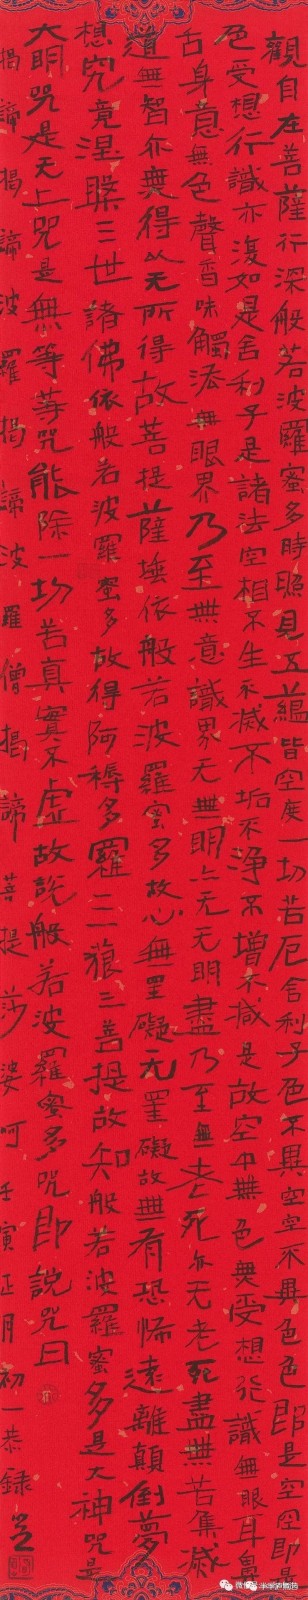 觀自在菩薩行深般若波羅蜜多時照見五蘊皆空度一切苦厄舍利子色不異空空不異色色即是空空即是
色受想行識亦復如是舍利子是諸法空相不生不滅不垢不淨不增不減是故空中無色無受想行識無眼耳鼻
舌身意無色聲香味觸法無眼界乃至無意識界无無明亦无无明盡乃至無老死亦无老死盡無苦集滅
道無智亦無得以无所得故菩提薩埵依般若波羅蜜多故心無罣礙无罣礙故無有恐怖遠離顛倒夢
想究竟涅槃三世諸佛依般若波羅蜜多故得阿耨多羅三藐三菩提故知般若波羅蜜多是大神咒是
大明咒是无上咒是無等等咒能除一切苦真實不虛故說般若波羅蜜多咒即說咒曰
揭諦揭諦波羅揭諦波羅僧揭諦菩提莎婆呵壬寅正月初一恭録